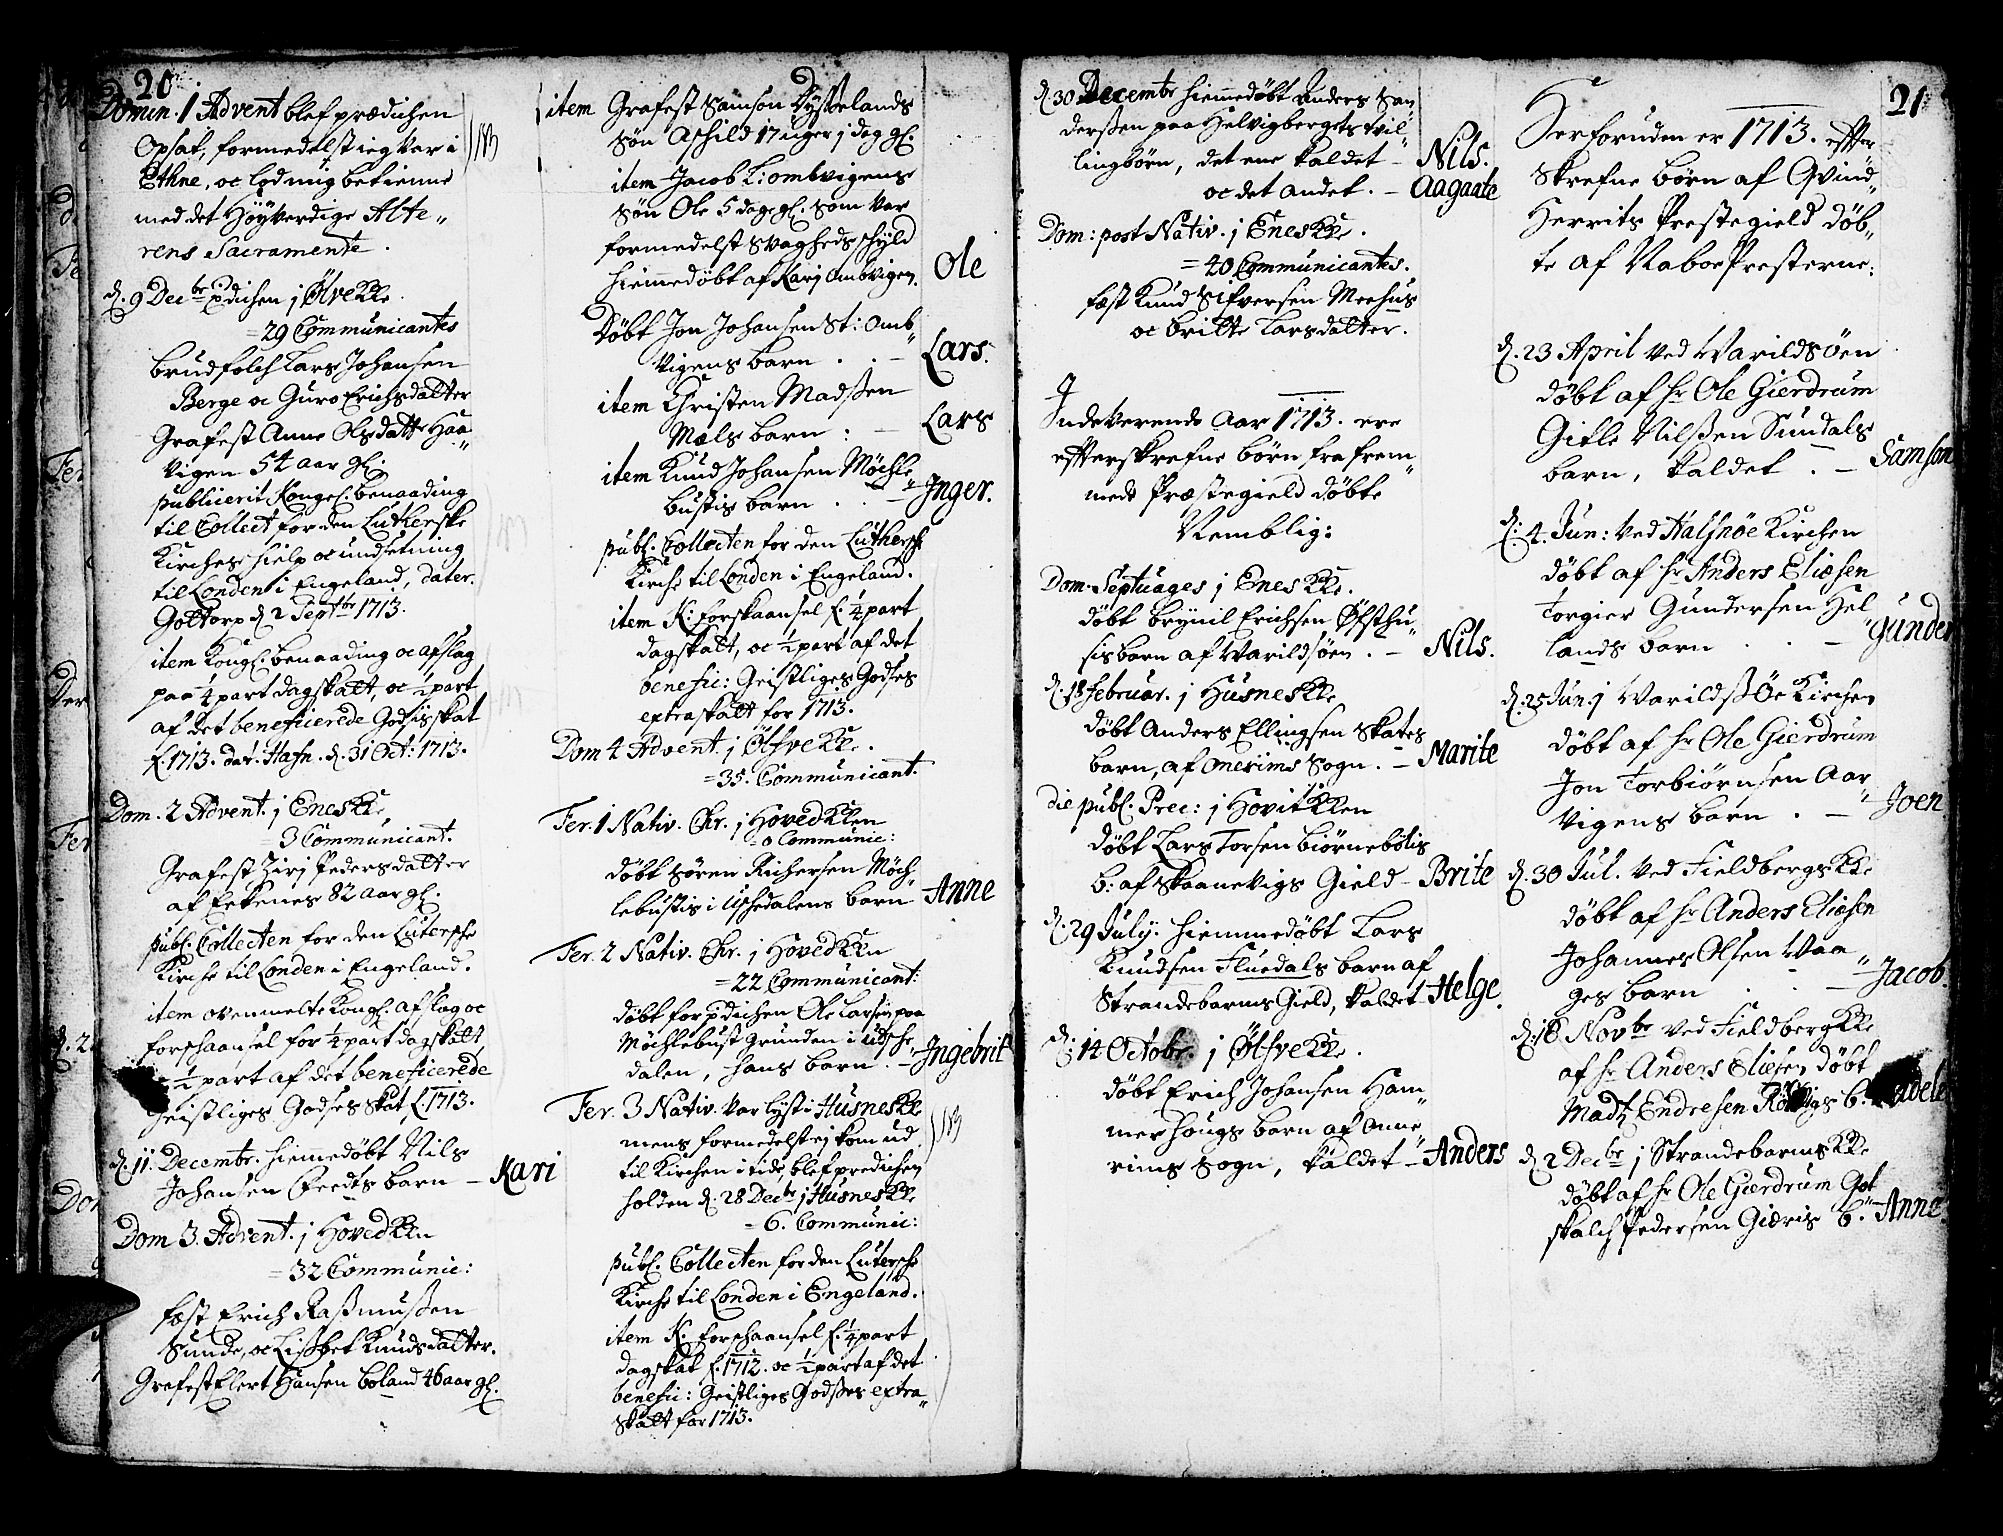 20
Domin. 1 Advent blef prædichen
Opsat, formedelst ieg var i
Ethne, oc lod mig betienne
med det Höyverdige Alte„
rens Sacramente.
d. 9 Decbr. pdichen j Ölve KKe.
= 29 Communicantes
Brudfolch Lars Johansen
Berge oc Guro Erichsdatter
Grafest Anne Olsdatte Haa„
vigen 54 aar gl.
publicerit Kongel. benaading
til Collect for den Lutherske
Kirches hielp oc undsetning
til Londen i Engeland, dater.
Gottorp d. 2 Septbr 1713.
item Kongl. benaading oc afslag
paa ¼ part dagskatt, oc ½ part
af det beneficerede Godsis skat
f. 1713. dat. Hafn. d. 31 Oct: 1713.
Dom. 2 Advent. j Enes KKe,
= 3 Communicant.
Grafest Zirj Pedersdatter
af Eekenes 82 aar gl.
publ. Collecten for den Lutersche
Kirche til Londen i Engeland.
item ovenmelte Kongl. afslag oc
forschaansel for ¼ part dagskatt,
½ part af det beneficerede
Geistliges Godses skat f. 1713.
d. 11. Decembr. hiemedøbt Nils
Johansen Eeedts barn - Kari
Dom 3. Advent. j HovedKKen
= 32 Communic:
fæst Erich Rasmussen
Sunde, oc Lisbet Knudsdatter.
Grafest Elert Hansen Boland 46 aar gl.
item Grafest Samson Dysselands
Søn Aschild 17 uger j dag gl.
item Jacob L: ombvigens
Søn Ole 5 dage gl. som var
formedelst svagheds schyld
hiemedøbt af Karj Ombvigen. Ole
Døbt Jon Johansen St: Omb„
vigens barn . . - Lars.
item Christen Madssen
Mæls barn : - Lars
item Knud Johansen Möchle„
bustis barn . . - Inger.
publ. Collecten for den Luthersch
Kirche til Londen i Engeland.
item K: forskaansel f. ¼ part
dagskatt, oc ½ part af det
benefic: Geistliges Godses
extraskatt for 1713.
Dom 4 Advent. j Ölfve KKe.
= 35. Communicant.
Fer. 1 Nativ. Chr. j HovedKKen
= 0 Communic:
døbt Sören Richersen Möch„
lebustis i Uschedalens barn - Anne
Fer. 2 Nativ. Chr. j HovedKKen
= 22 Communicant:
døbt for pdichen Ole Larsen paa
Möchlebust grunden i udsche„
dalen, hans barn. - Ingebrit
Fer. 3 Nativ. var lyst i Husnes KKe
mens formedelst ej kom ud
til Kirchen i tide, blef predichen
holden d. 28 Decbr j Husnes KKe
= 6. Communic:
publ. Collecten for den Lutersche
Kirche til Londen i Engeland.
item K. forschaansel f. ¼ part
dagskat f. 1712. oc ½ part af det
benefic: Geistliges Godsses extra„
skatt for 1713.
d. 30 Decembr hiemedøbt Anders San„
derssen paa Helvigbergets tvil„
lingbörn, det ene kaldet - Nils.
oc det andet. - Aagaate
Dom: post Nativ. j Enes KKe.
= 40 Communicantes.
fæst Knud Sifversen Meehus
oc britte Larsdatter.
Indeverende Aar 1713. ere
effterskrefne börn fra frem„
mede Præstegield døbte
Nemblig:
Dom. Septuages j Enes KKe.
döbt brynil Erichsen Öfsthu„
sis barn af Varildsöen. - Nils.
d. 18 februar. j Husnes KKe
döbt Anders Ellingsen Skates
barn, af Onerims Sogn. - Marite
die publ. Prec: j HovitKKen
døbt Lars Torsen Biörnebölis
b: af Skaanevigs Gield - Brite
d. 29 July. hiemmedøbt Lars
Knudsen Fluedals barn af
Strandebarms Gield, kaldet Helge.
d. 14 Octobr. j Ölfve KKe.
døbt Erich Johansen Ham„
mershougs barn af Onne„
rims Sogn, kaldet - Anders
21
Herforuden er 1713. effter
skrefne börn af Qvind„
Herrits Prestegield döb„
te af Naboe Presterne:
d. 23 April ved Varildsöen
døbt af hr Ole Gierdrum
Gitle Nilssen Sundals
barn, kaldet . - Samson
d. 4. Jun: ved Halsnöe Kirchen
döbt af hr Anders Eliæsen
Torgier Gundersen Hel„
lands barn . . - Gunder
d. 25 Jun. j Varildsöe Kirche
döbt af hr Ole Gierdrum
Jon Torbiörnsen Aar„
vigens barn . - Joen
d. 30 Jul. ved Fieldbergs KKe
døbt af hr Anders Eliæsen
Johannes Olsen Waa„
ges barn . . - Jacob.
d. 18 Novbr ved Fieldberg KKe
af hr Anders Eliæsen döbt
Madtz Endresen b.
d. 2 Decbr j Strandebarms KKe
döbt af hr Ole Gierdrum Got„
skalch Pedersen Giæris b. Anne